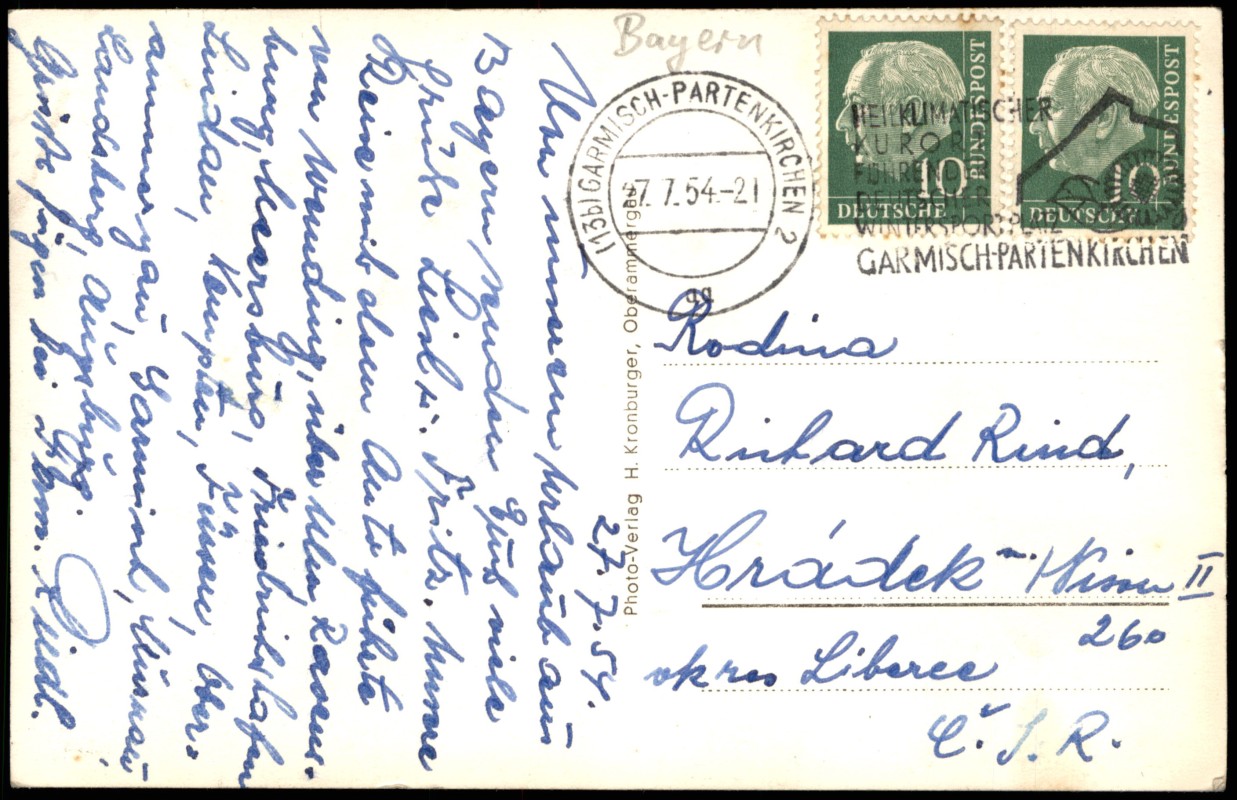 Bayern
(13b) GARMISCH-PARTENKIRCHEN 2
27.7.54-21
aa
HEILKLIMATISCHER
KURORT
FÜHRENDER
DEUTSCHER
WINTERSPORTPLATZ
GARMISCH-PARTENKIRCHEN
DEUTSCHE BUNDESPOST
10
DEUTSCHE BUNDESPOST
10
27.7.54.
Von unserem Urlaub aus
Bayern senden Euch viele
Grüße Liesl u. Fritz. Unsere
Reise mit dem Auto führte
von Wemding, über Ulm, Ravens-
burg, Meersburg, Friedrichshafen
Lindau, Kempten, Füssen, Ober-
ammergau, Garmisch, Murnau,
Landsberg, Augsburg.
Grüße fügen bei Fam. Riedl.
Photo-Verlag H. Kronburger, Oberammergau
Rodina
Richard Rind,
Hrádek n. Nisou II
260
okres Liberec
Č.S.R.